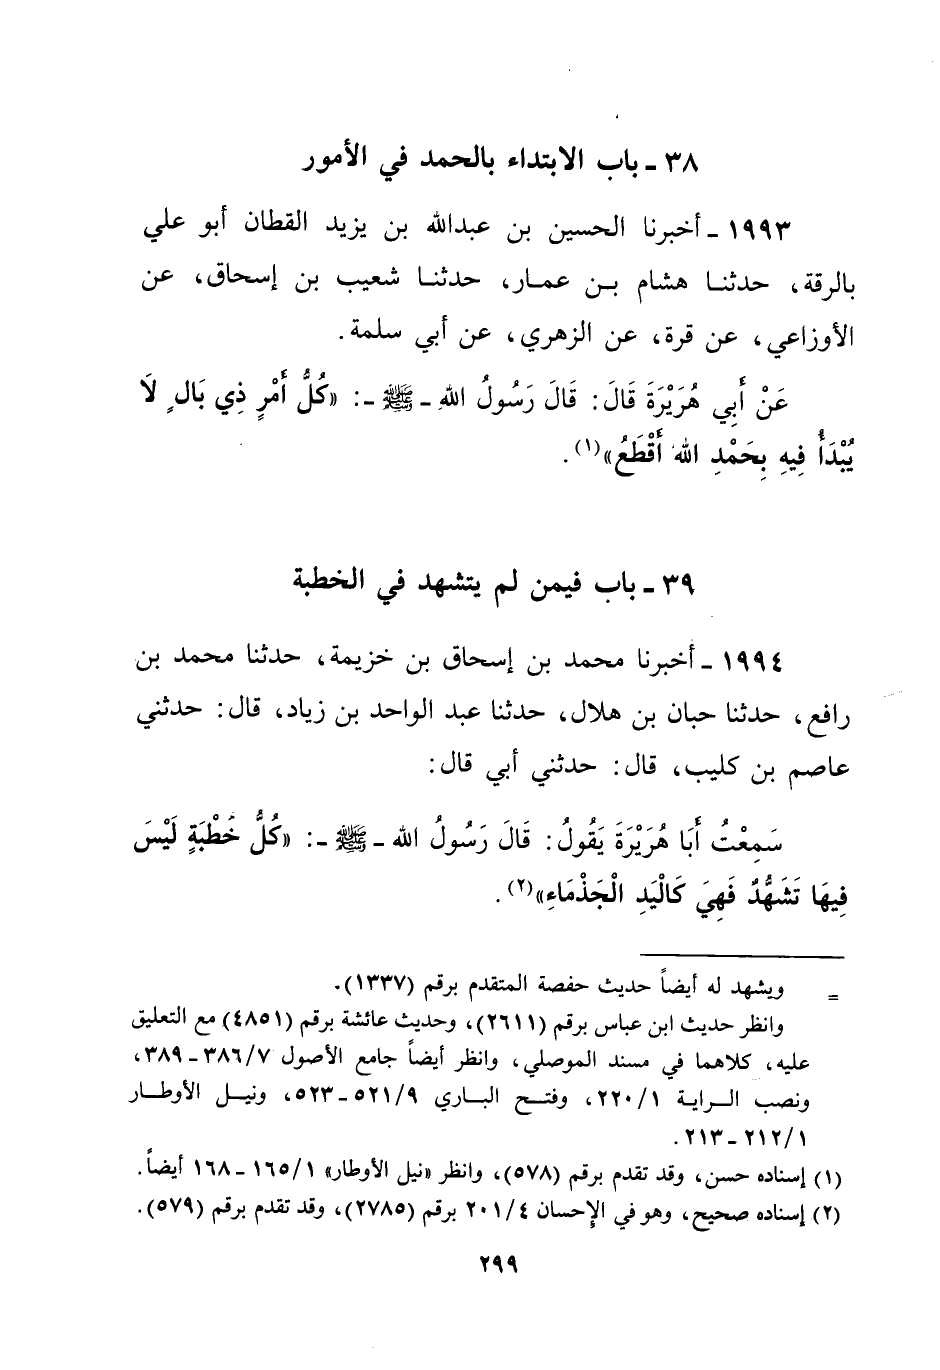 ٣٨ ـ باب الابتداء بالحمد في الأمور
١٩٩٣ ـ أخبرنا الحسين بن عبدالله بن يزيد القطان أبو علي
بالرقة، حدثنـا هشام بـن عمـار، حدثنـا شعيب بن إسحاق، عن
الأوزاعي، عن قرة، عن الزهري، عن أبي سلمة.
عَنْ أَبِي هُرَيْرَةَ قَالَ: قَالَ رَسُولُ اللهِ ـ ﷺ ـ: «كُلُّ أَمْرٍ ذِي بَالٍ لَا
يُبْدَأُ فِيهِ بِحَمْدِ اللهِ أَقْطَعُ»(١).
٣٩ ـ باب فيمن لم يتشهد في الخطبة
١٩٩٤ ـ أخبرنا محمد بن إسحاق بن خزيمة، حدثنا محمد بن
رافع، حدثنا حبان بن هلال، حدثنا عبد الواحد بن زياد، قال: حدثني
عاصم بن كليب، قال: حدثني أبي قال:
سَمِعْتُ أَبَا هُرَيْرَةَ يَقُولُ: قَالَ رَسُولُ الله ـ ﷺ ـ: «كُلُّ خُطْبَةٍ لَيْسَ
فِيهَا تَشَهُّدٌ فَهِيَ كَالْيَدِ الْجَذْمَاءِ»(٢).
= ويشهد له أيضاً حديث حفصة المتقدم برقم (١٣٣٧).
وانظر حديث ابن عباس برقم (٢٦١١)، وحديث عائشة برقم (٤٨٥١) مع التعليق
عليه، كلاهما في مسند الموصلي، وانظر أيضاً جامع الأصول ٣٨٦/٧ ـ ٣٨٩،
ونصب الـرايـة ٢٢٠/١، وفتـح البـاري ٥٢١/٩ ـ ٥٢٣، ونيـل الأوطـار
٢١٢/١ ـ ٢١٣.
(١) إسناده حسن، وقد تقدم برقم (٥٧٨)، وانظر «نيل الأوطار» ١٦٥/١ ـ ١٦٨ أيضاً.
(٢) إسناده صحيح، وهو في الإحسان ٢٠١/٤ برقم (٢٧٨٥)، وقد تقدم برقم (٥٧٩).
٢٩٩